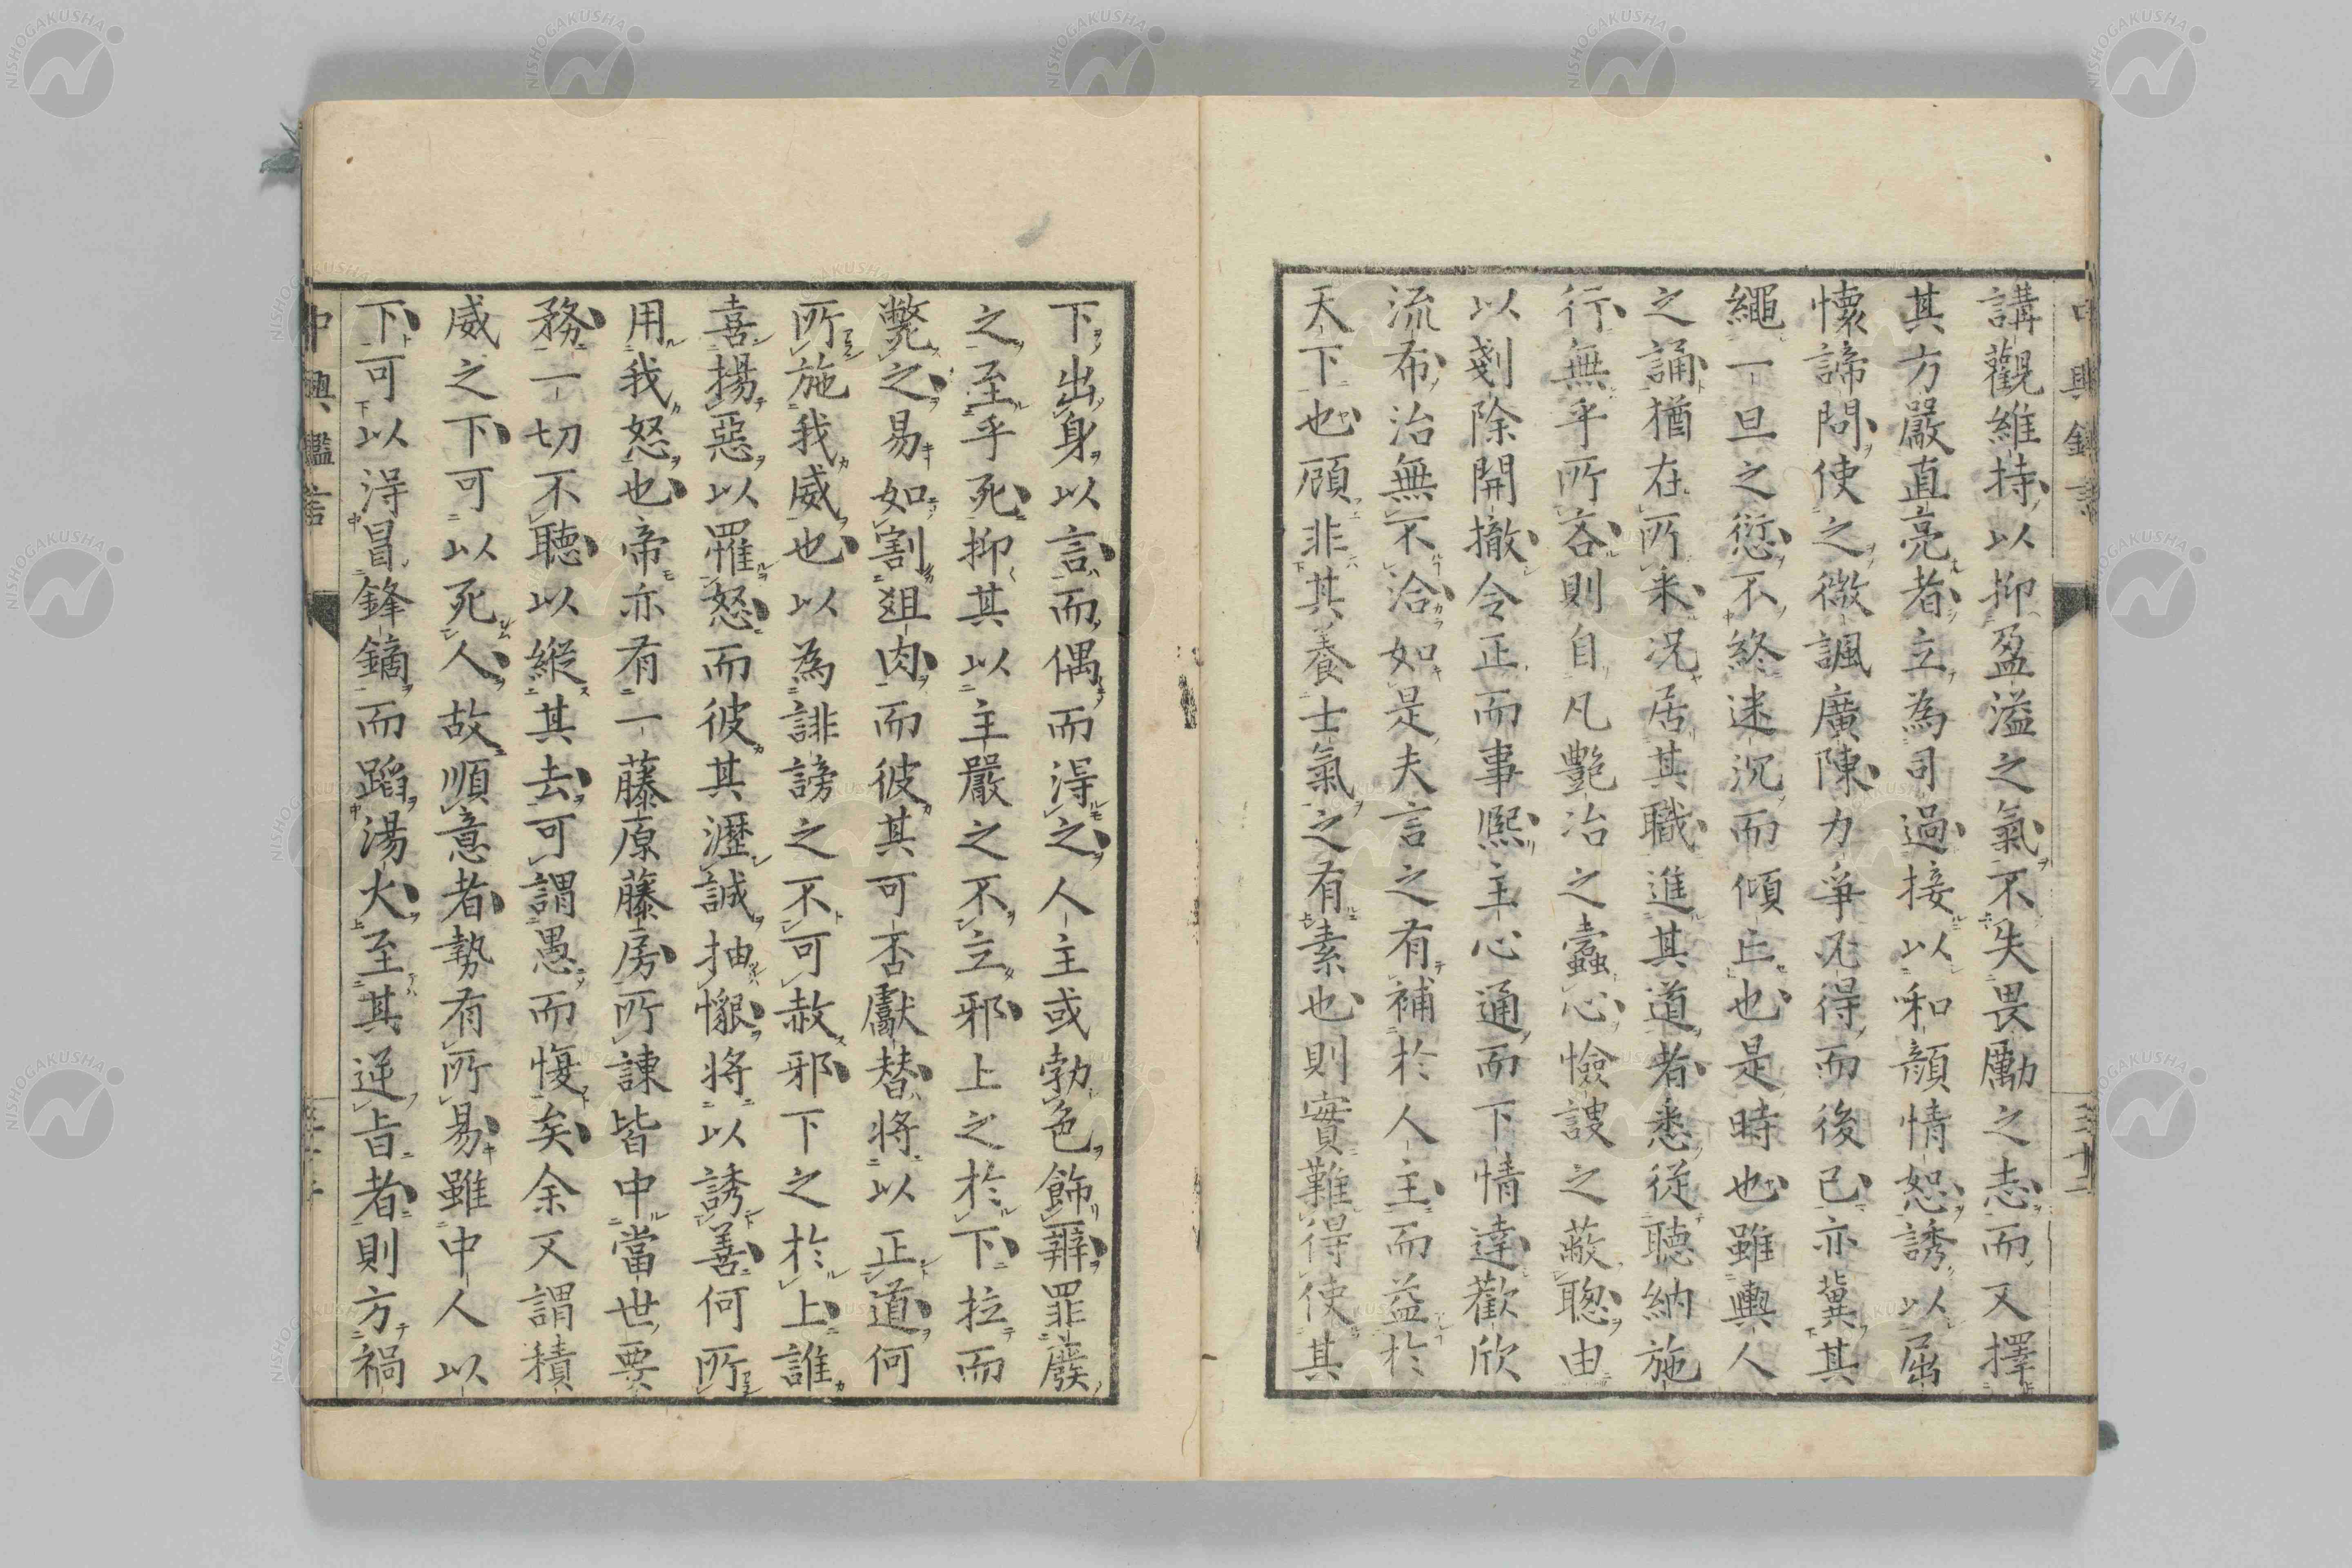 講觀維持以抑盈溢之氣不失畏勵之志而又擇
其方嚴直亮者立為司過接以和顏情恕誘以屈
懷諦問使之微諷廣陳力爭不得而後已亦冀其
繩一旦之愆不終迷沉而傾亡也是時也雖輿人
之誦猶在所釆況居其職進其道者悉從聽納施
行無乎所吝則自凡艷冶之蠱心憸謏之蔽聰由
以剗除開撤令正而事熙主心通而下情達歡欣
流布治無不洽如是夫言之有補於人主而益於
天下也頋非其養士氣之有素也則實難得使其
下出身以言而偶而淂之人主或勃色飾辭罪廢
之至乎死抑其以主嚴之不立邪上之於下拉而
斃之易如割俎肉而彼其可否獻替將以正道何
所施我威也以為誹謗之不可赦邪下之於上誰
喜揚惡以罹怒而彼其瀝誠抽懇將以誘善何所
用我怒也帝亦有一藤原藤房所諫皆中當世要
務一切不聽以縱其去可謂愚而愎矣余又謂積
威之下可以死人故順意者勢有所易雖中人以
下可以淂冒鋒鏑而蹈湯火至其逆旨者則方禍
中興鑑言
NISHOGAKUSHA